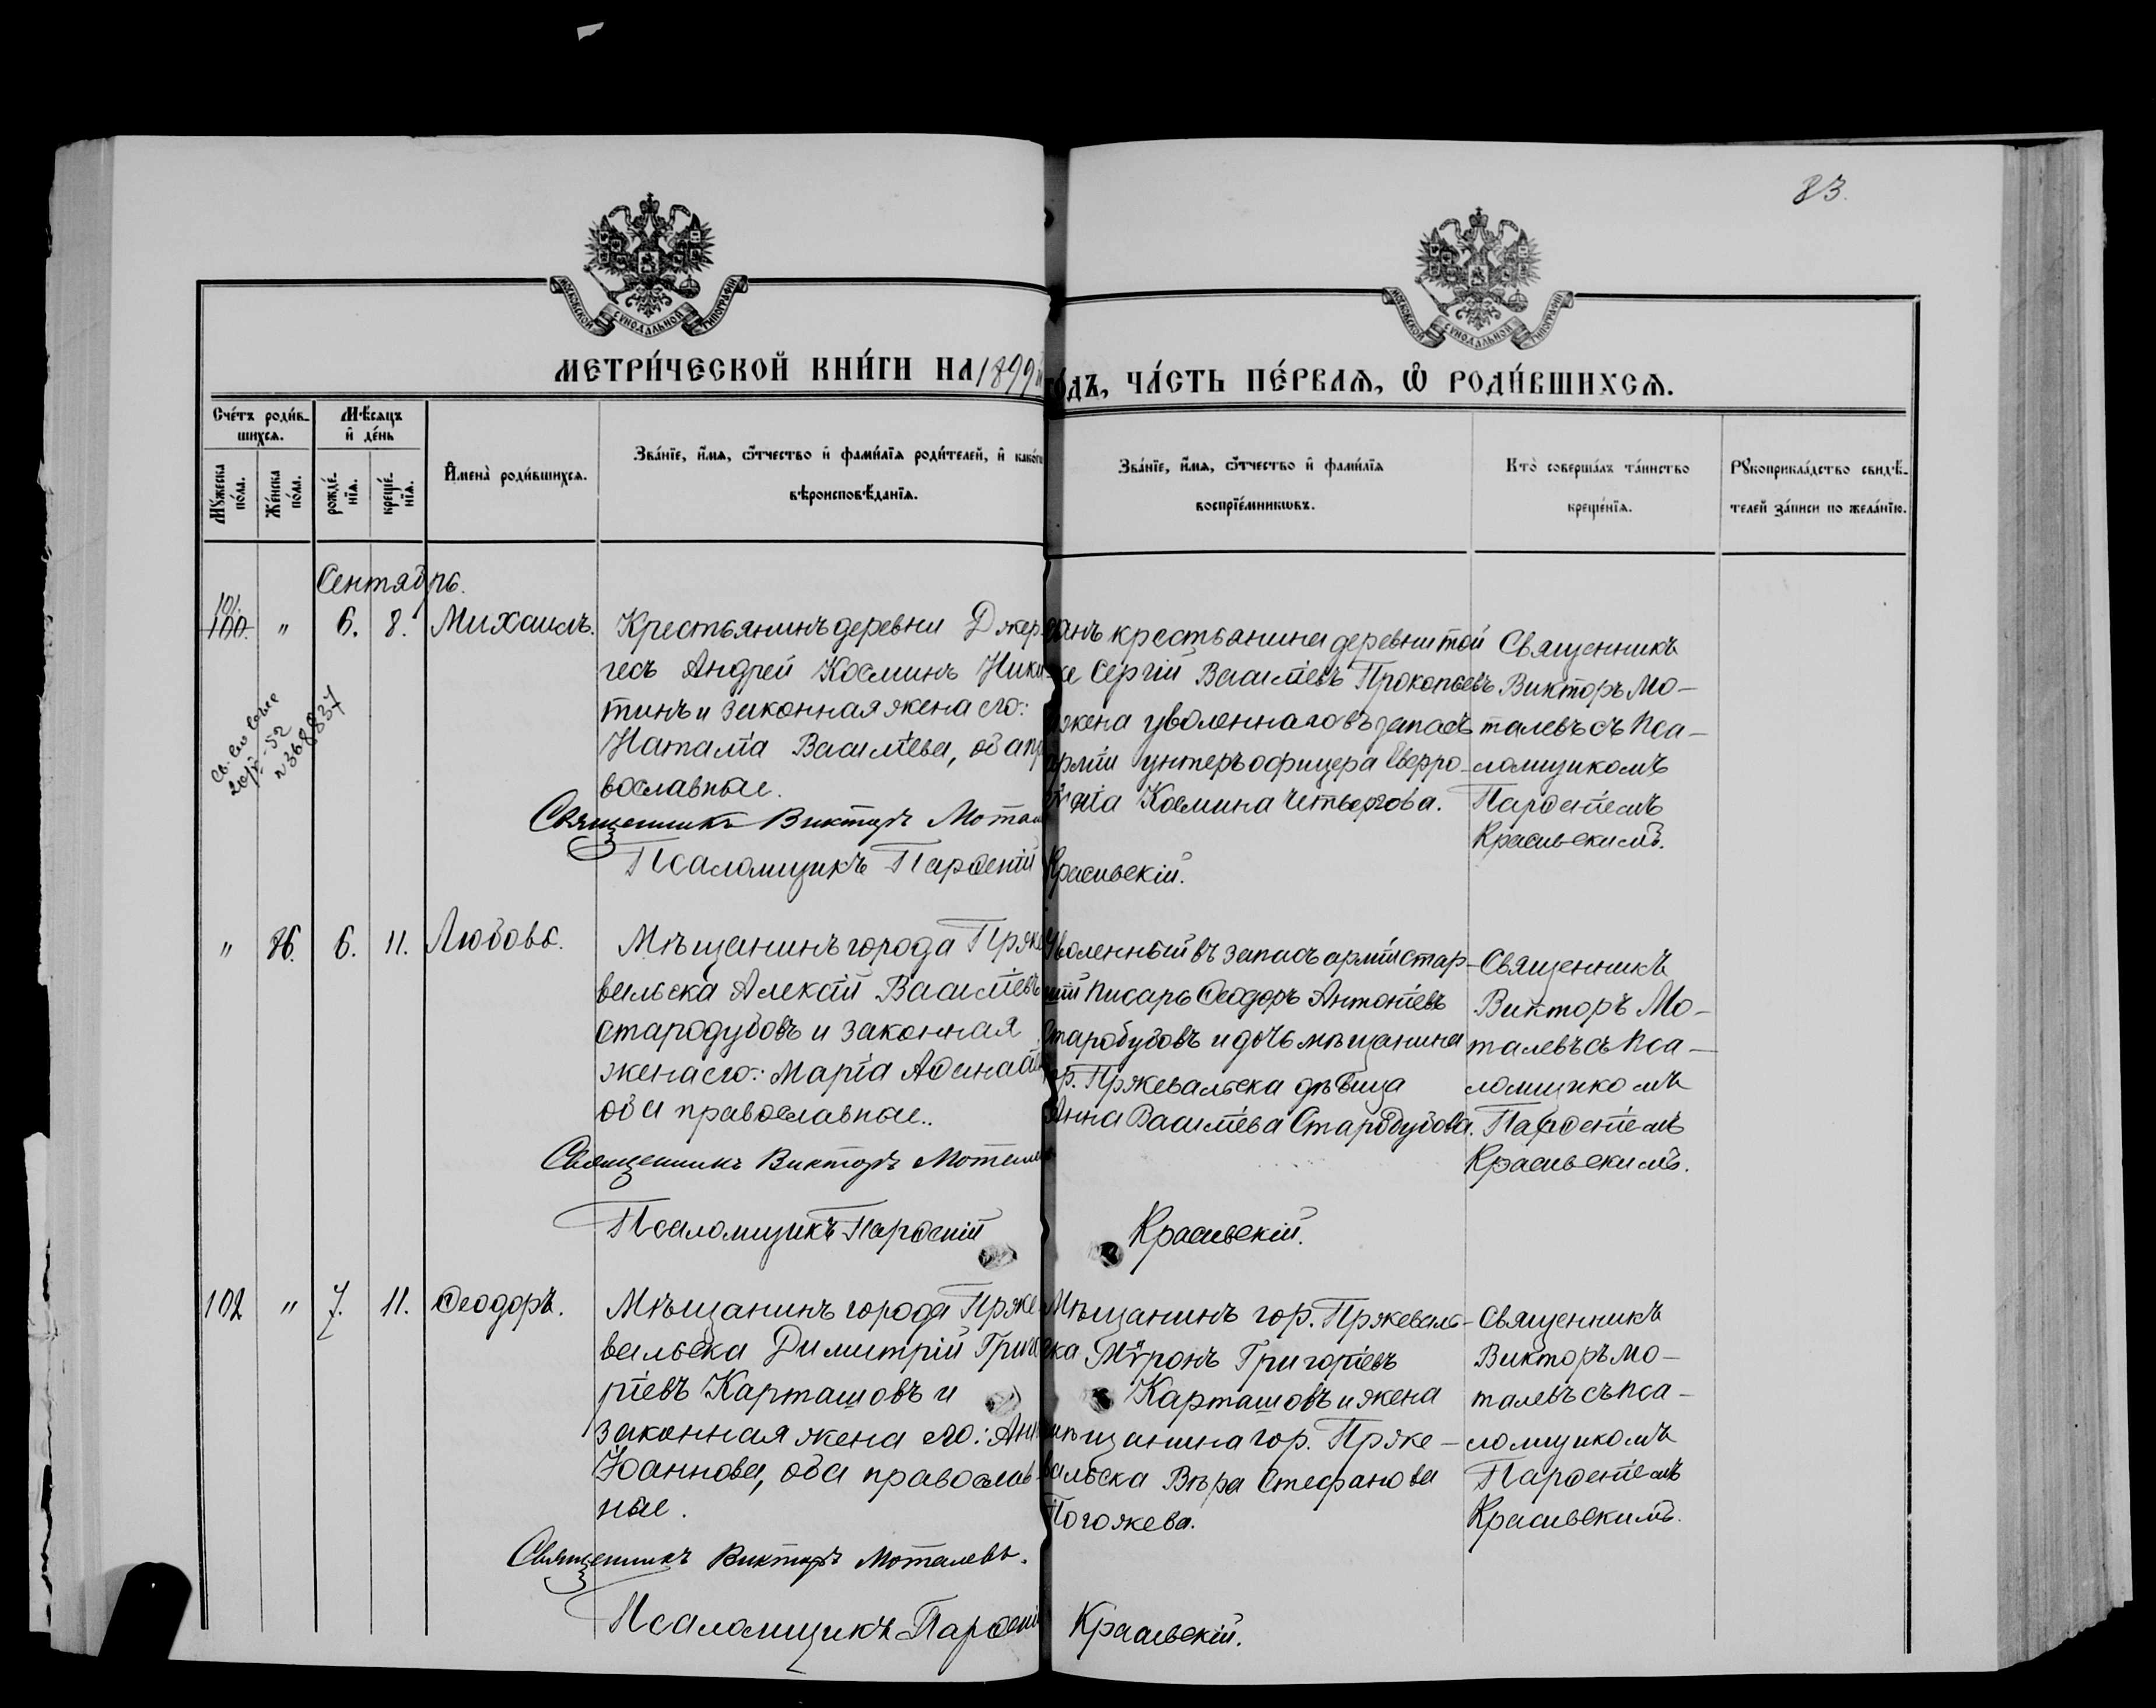 83.
МОСКОВСКОЙ СѴНОДАЛЬНОЙ ТИПОГРАФІИ
МОСКОВСКОЙ СѴНОДАЛЬНОЙ ТИПОГРАФІИ
МЕТРИ́ЧЕСКОЙ КНИ́ГИ НА 1899й
го́дъ, ЧА́СТЬ ПЕ́РВАѦ, Ѡ҆ РОДИ́ВШИХСѦ.
Сче́тъ роди́в-
шихсѧ.
Мѣ́сяцъ
и҆ де́нь
Мꙋ́жеска
по́ла.
Же́нска
по́ла.
рожде́-
нїѧ.
креще́-
нїѧ.
И҆мена̀ роди́вшихсѧ.
Зва́нїе, и҆́мѧ, ѻ҆́тчество и҆ фами́лїѧ роди́телей, и҆ како́гѡ
вѣроисповѣ́данїѧ.
Зва́нїе, и҆́мѧ, ѻ҆́тчество и҆ фами́лїѧ
воспрїе́мникѡвъ.
Кто̀ соверша́лъ та́инство
креще́нїѧ.
Рꙋкоприкла́дство свидѣ́-
телей за́писи по жела́нїю.
Сентябрь.
101.
100. " 6. 8. Михаилъ.
Крестьянинъ деревни Джер-
гесъ Андрей Косминъ Ники-
тинъ и законная жена его:
Наталія Васильева, оба пра-
вославные.
Священникъ Викторъ Мотал
Псаломщикъ Парѳеній Красивскій.
сынъ крестьянина деревни той
же Сергій Васильевъ Прокопьевъ
жена уволеннаго въ запасъ
арміи унтеръ офицера Евро
Космина Четвергова.
Священникъ
Викторъ Мо-
талевъ съ пса-
ломщикомъ
Парѳеніемъ
Красивскимъ.
52
N 368837
" 86. 6. 11. Любовь.
Мѣщанинъ города Прже
вальска Алексій Васильевъ
Стародубовъ и законная
жена его: Марія Аѳанасі
оба православные.
Священникъ Викторъ Моталев
Псаломщикъ Парѳеній Красивскій.
Уволенный въ запасъ арміи стар-
шій писарь Ѳеодоръ Антоніевъ
Стародубовъ и дочь мѣщанина
гор. Пржевальска дѣвица
Анна Васильева Стародубова.
Священникъ
Викторъ Мо-
талевъ съ пса-
ломщикомъ
Парѳеніемъ
Красивскимъ.
102 " 7. 11. Ѳеодоръ.
Мѣщанинъ города Прже-
вальска Димитрій Григо
ріевъ Карташовъ и
законная жена его: Анн
Іоаннова, оба православ-
ные.
Священникъ Викторъ Моталевъ.
Псаломщикъ Парѳеній Красивскій.
Мѣщанинъ гор. Пржеваль-
ска Мѵронъ Григоріевъ
Карташовъ и жена
мѣщанина гор. Прже-
вальска Вѣра Стефанова
Погожева.
Священникъ
Викторъ Мо-
талевъ съ пса-
ломщикомъ
Парѳеніемъ
Красивскимъ.